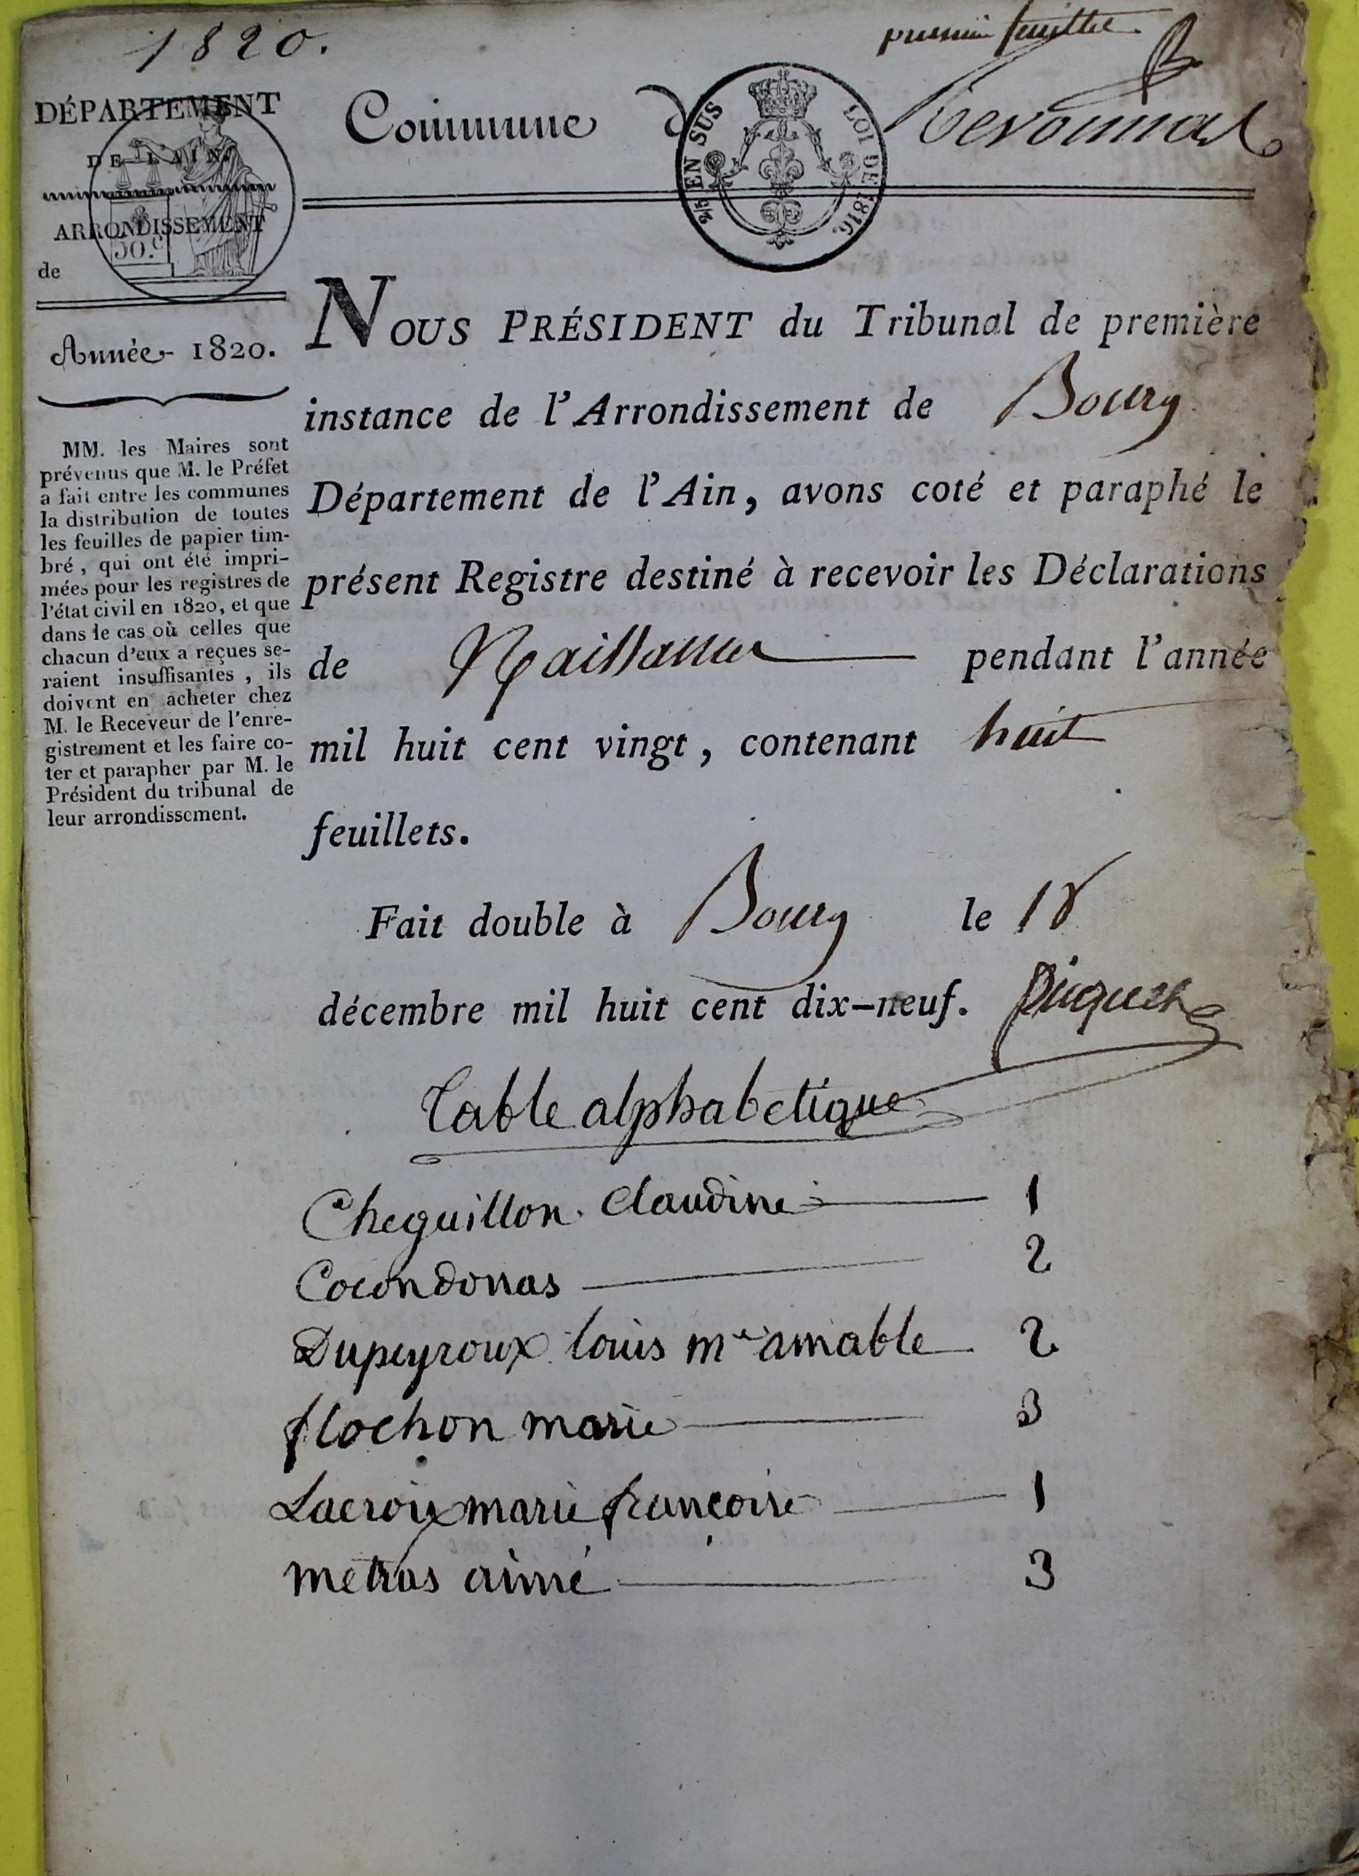 1820.
premier feuillet.
DÉPARTEMENT
DE L'AIN.
ARRONDISSEMENT
de
50.c
Commune de
2/5 EN SUS LOI DE 1816.
Année 1820.
MM. les Maires sont
prévenus que M. le Préfet
a fait entre les communes
la distribution de toutes
les feuilles de papier tim-
bré, qui ont été impri-
mées pour les registres de
l'état civil en 1820, et que
dans le cas où celles que
chacun d'eux a reçues se-
raient insuffisantes, ils
doivent en acheter chez
M. le Receveur de l'enre-
gistrement et les faire co-
ter et parapher par M. le
Président du tribunal de
leur arrondissement.
NOUS PRÉSIDENT du Tribunal de première
instance de l'Arrondissement de Bourg
Département de l'Ain, avons coté et paraphé le
présent Registre destiné à recevoir les Déclarations
de Naissances pendant l'année
mil huit cent vingt, contenant huit
feuillets.
Fait double à Bourg le 18
décembre mil huit cent dix-neuf.
Table alphabetique
Cheguillon. Claudine 1
Cocondonas 2
Dupeyroux louis mie amable 2
flochon marie 3
Lacroix marie françoise 1
metras aimé 3